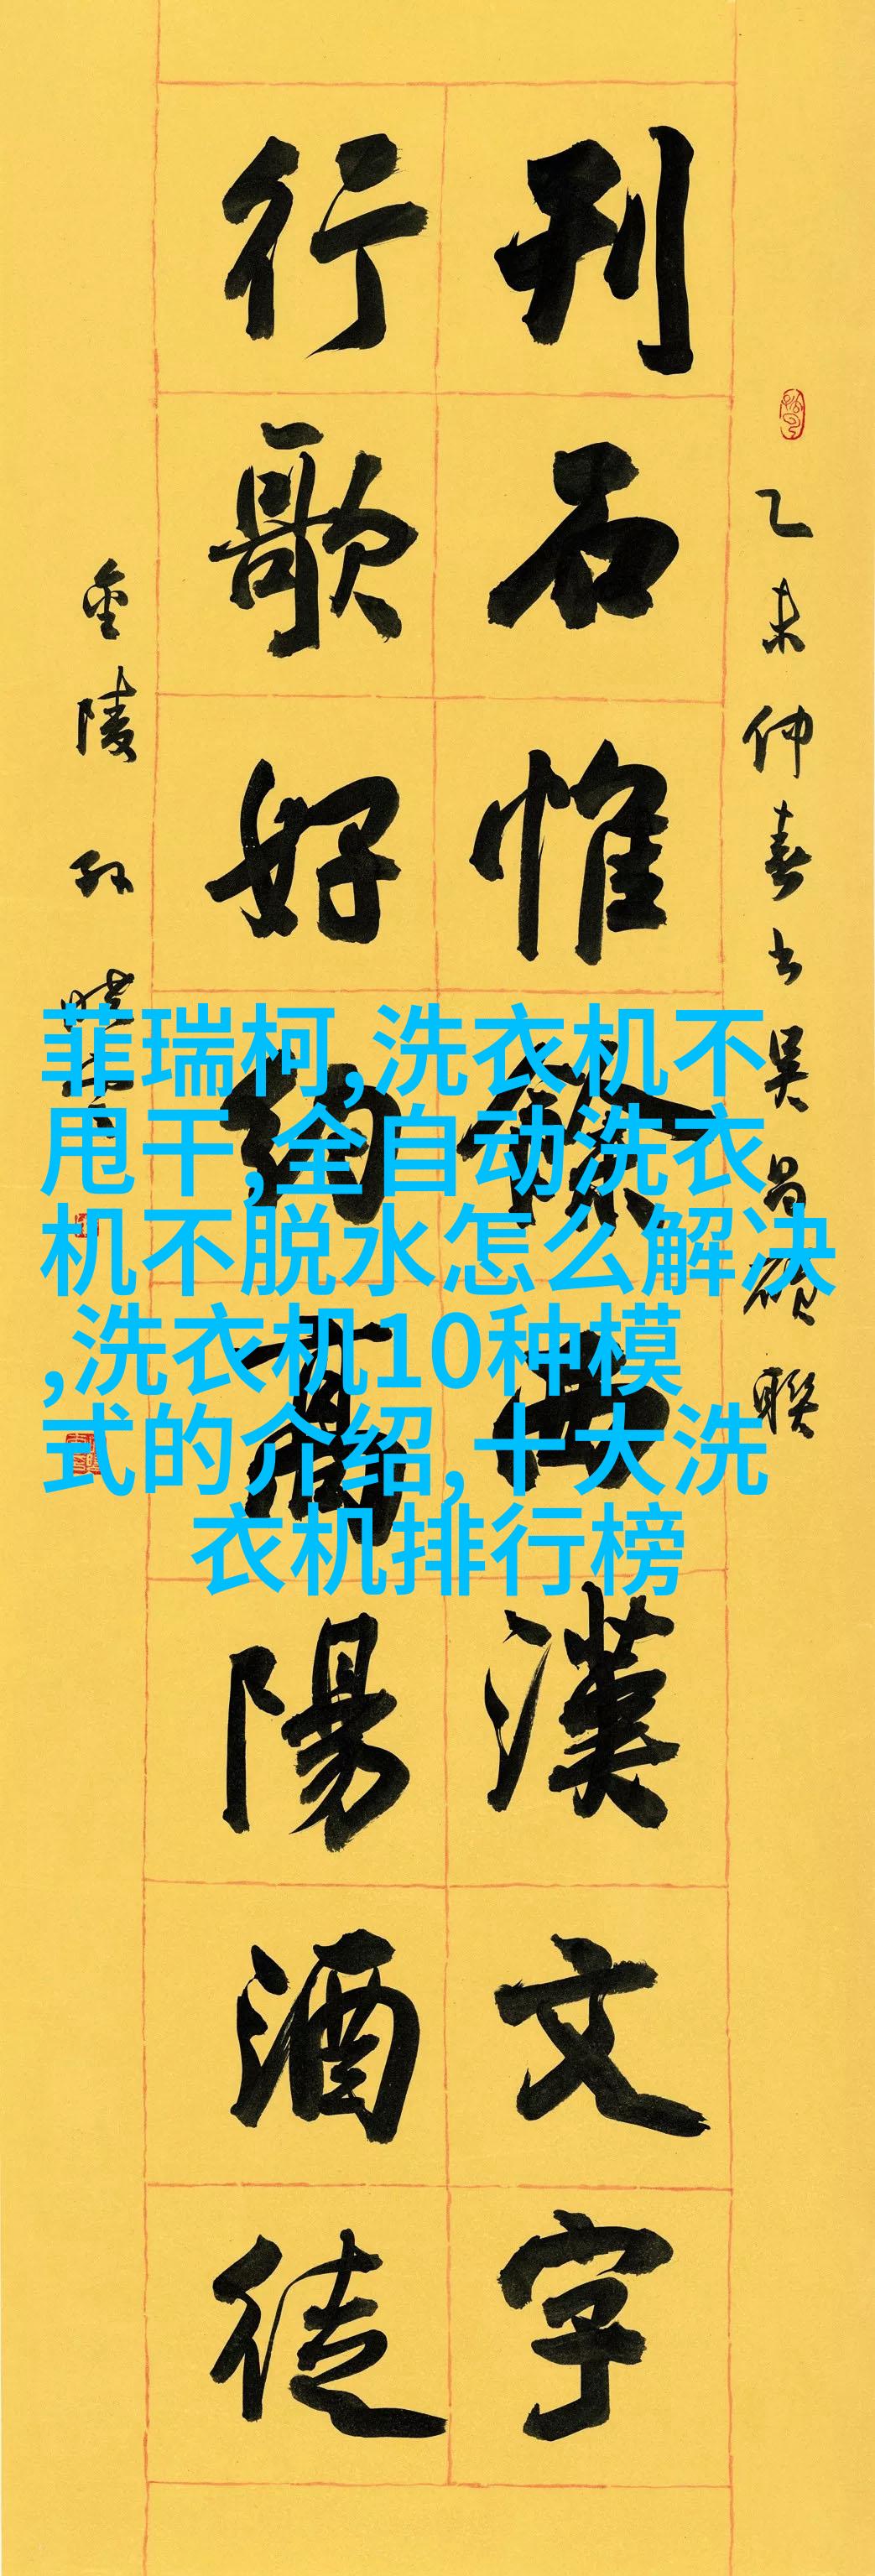 乙未仲春书吴昌硕联
刊石惟餘西漢文字
行歌好约高陽酒徒
金陵孙晓云
菲瑞柯,洗衣机不
甩干,全自动洗衣
机不脱水怎么解决
,洗衣机10种模
式的介绍,十大洗
衣机排行榜